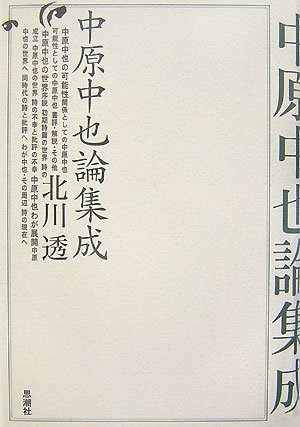 中原中也論集成
中原中也の可能性関係としての中原中也
可能性としての中原中也 書評・解説・その他
中原中也の世界序説 初期詩篇の世界 詩の
成立 中原中也の世界 詩の不幸と批評の不幸 中原中也わが展開 中原
中也の世界へ 同時代の詩と批評へ わが中也・その周辺 詩の現在へ
北川透
思潮社
中原中也論集成